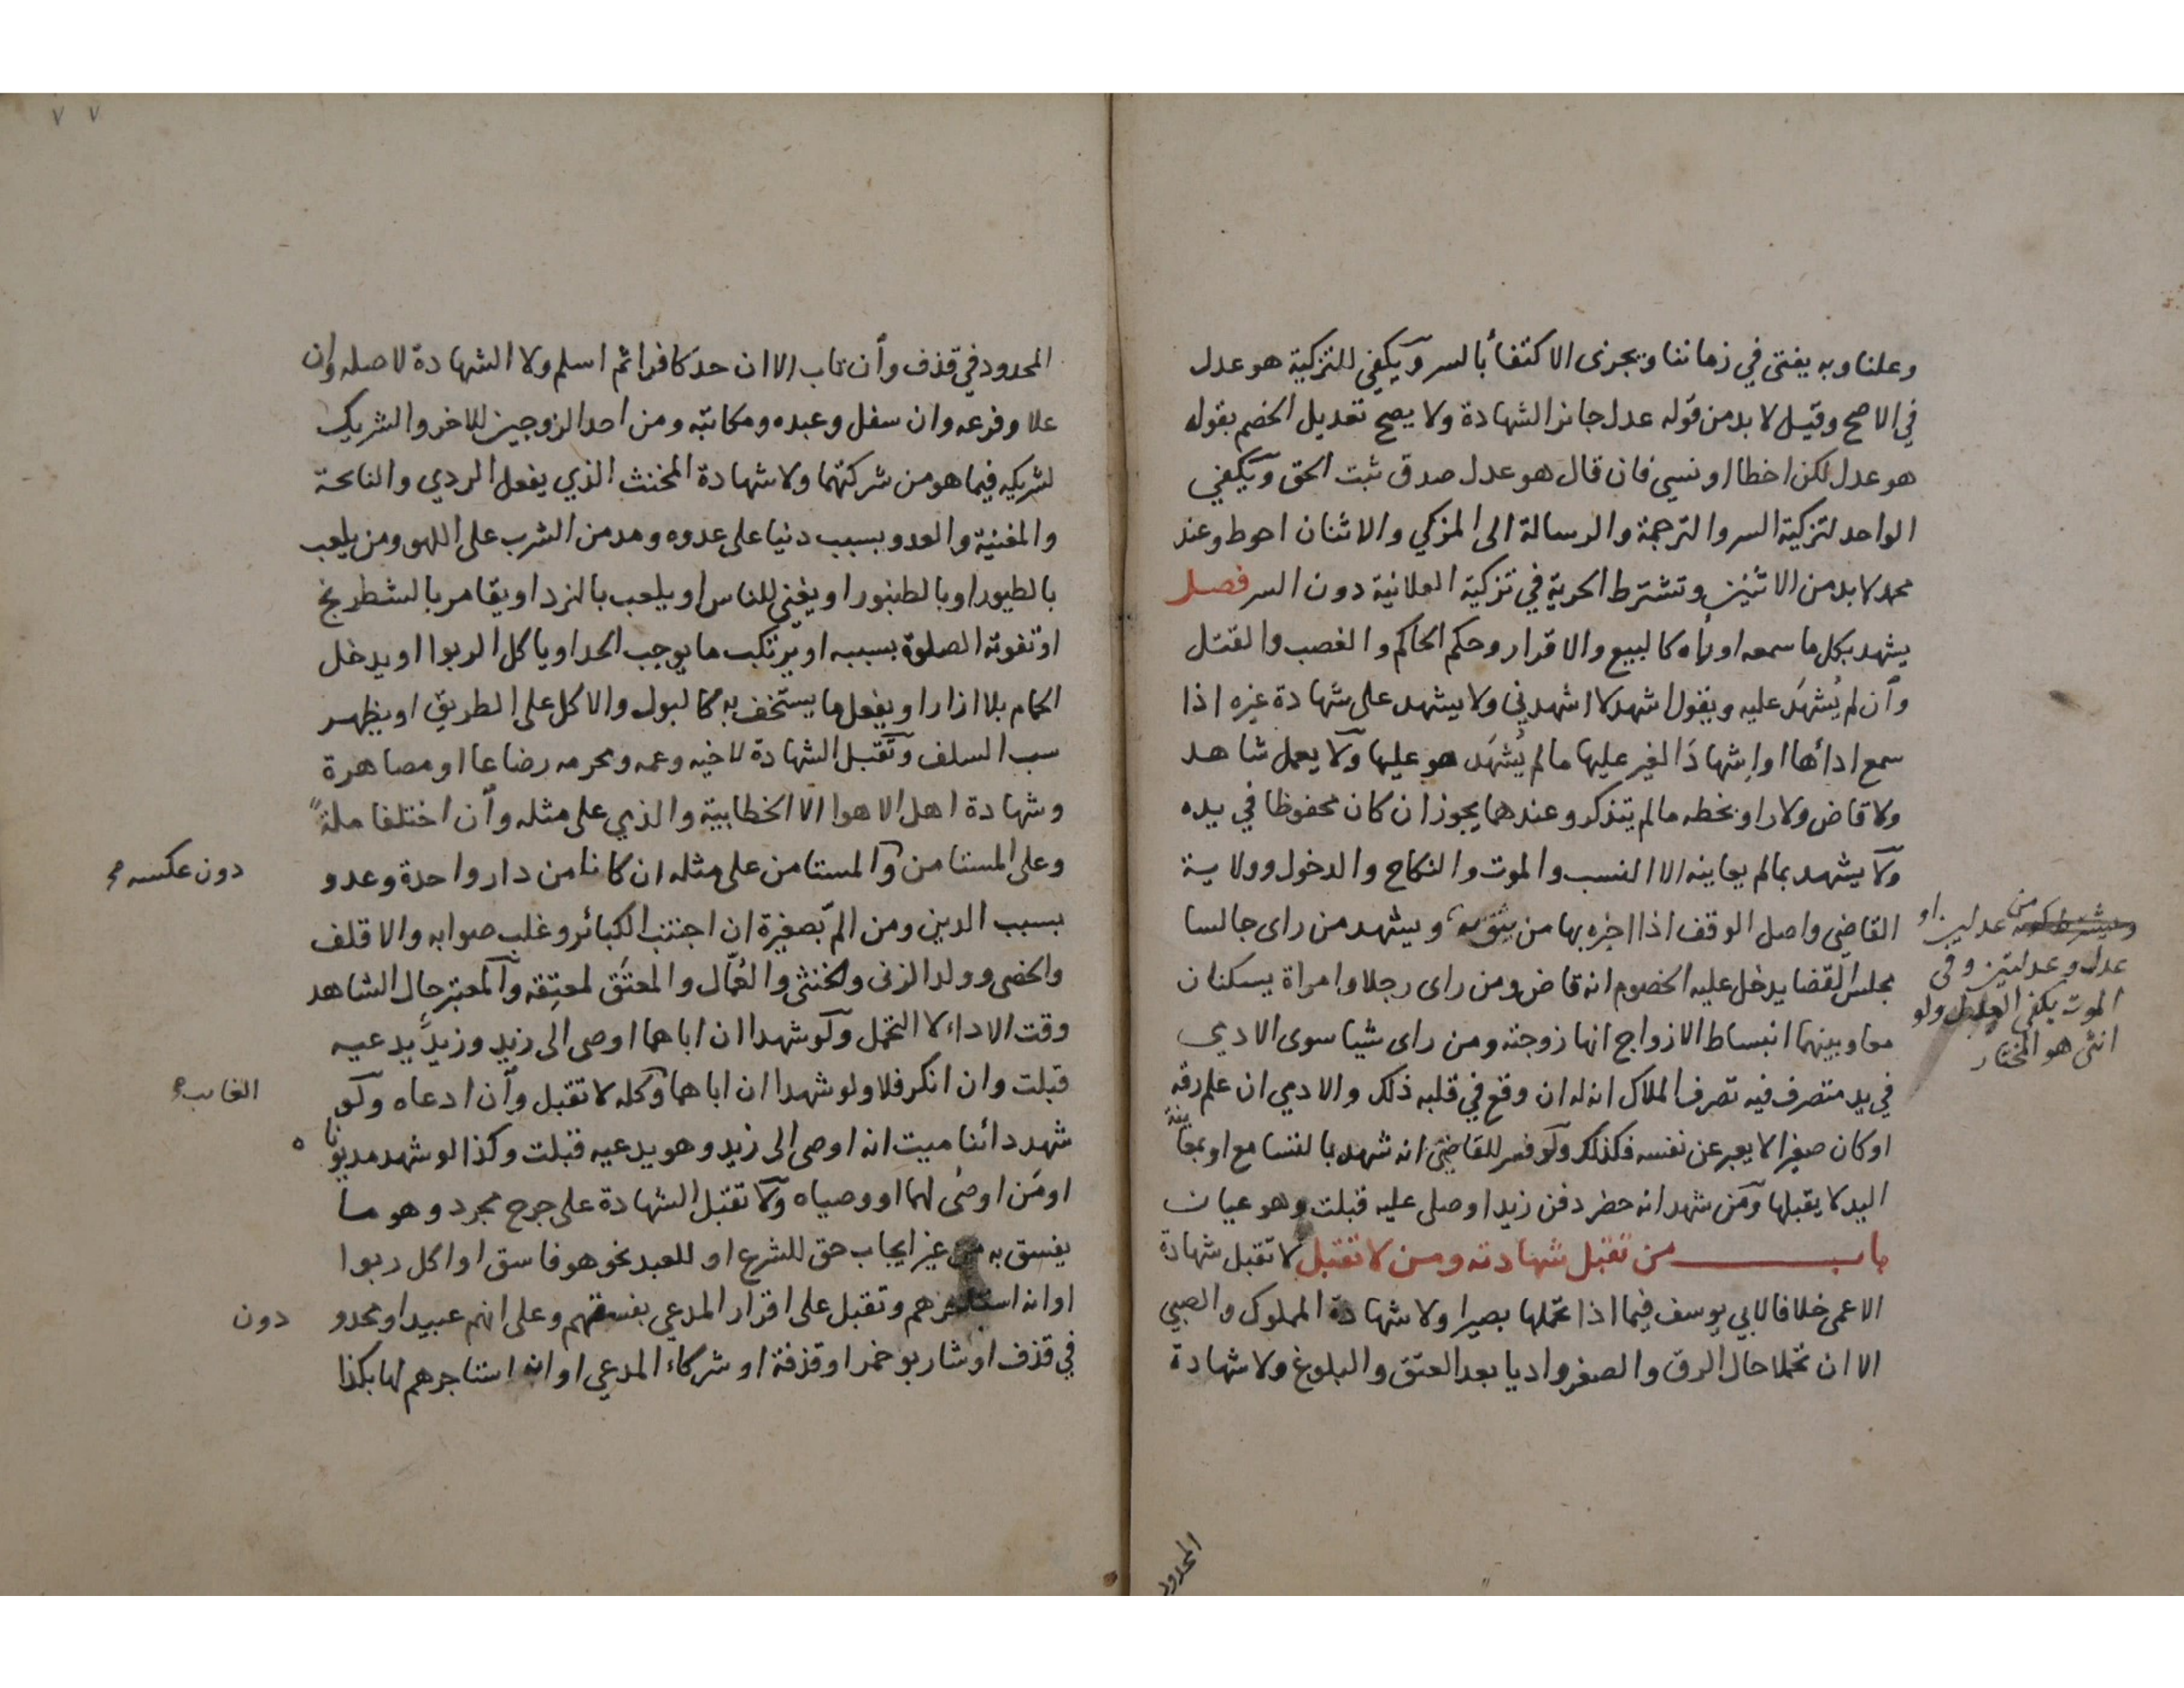 وعلنا وبه يفتى في زماننا ويجزى الاكتفأ بالسر ويكفي للتزكية هو عدل
في الاصح وقيل لا بد من قوله عدل جائز الشهادة ولا يصح تعديل الخصم بقوله
هو عدل لكن اخطا او نسي فان قال هو عدل صدق ثبت الحق ويكفي
الواحد لتزكية السر والترجمة والرسالة الى المزكي والاثنان احوط وعند
محمد لا بد من الاثنين وتشترط الحرية في تزكية العلانية دون السر فصل
يشهد بكل ما سمعه او رأه كالبيع والاقرار وحكم الحاكم والغصب والقتل
وان لم يُشهَد عليه ويقول اشهد لا اشهدني ولا يشهد على شهادة غيره اذا
سمع اداأها او اشهادَ الغير عليها ما لم يُشهَد هو عليها ولا يعمل شاهد
ولا قاض ولا راو بخطه ما لم يتذكر وعندهما يجوز ان كان محفوظا في يده
ولا يشهد بما لم يعاينه الا النسب والموت والنكاح والدخول وولاية
القاضي واصل الوقف اذا اخبره بها من يثق به ويشهد من راى جالسا
مجلس القضا يدخل عليه الخصوم انه قاض ومن راى رجلا وامراة يسكنان
معا وبينهما انبساط الازواج انها زوجته ومن راى شيا سوى الادمي
في يد متصرف فيه تصرف الملاك انه له ان وقع في قلبه ذلك والادمي ان علم رقه
او كان صغيرا لا يعبر عن نفسه فكذلك ولو فسر للقاضي انه شهد بالتسامع او بمعاينة
اليد لا يقبلها ومن شهد انه حضر دفن زيد او صلى عليه قبلت وهو عيان
باب من تقبل شهادته ومن لا تقبل لا تقبل شهادة
الاعمى خلافا لابي يوسف فيما اذا تحملها بصيرا ولا شهادة المملوك والصبي
الا ان تحملا حال الرق والصغر واديا بعد العتق والبلوغ ولا شهادة
من عدلين او
عدل وعدلتين وفي
الموت يكفي العدل ولو
انثى هو المختار
المحدود
٧ ٧
المحدود في قذف وان تاب الا ان حد كافرا ثم اسلم ولا الشهادة لاصله وان
علا وفرعه وان سفل وعبده ومكاتبه ومن احد الزوجين للاخر والشريك
لشريكه فيما هو من شركتهما ولا شهادة المخنث الذي يفعل الردي والنائحة
والمغنية والعدو بسبب دنيا على عدوه ومدمن الشرب على اللهو ومن يلعب
بالطيور او بالطنبور او يغني للناس او يلعب بالنرد او يقامر بالشطرنج
او تفوته الصلوة بسببه او يرتكب ما يوجب الحد او ياكل الربوا او يدخل
الحمام بلا ازار او يفعل ما يستخف به كالبول والاكل على الطريق او يظهر
سب السلف وتقبل الشهادة لاخيه وعمه ومحرمه رضاعا او مصاهرة
وشهادة اهل الاهوا الا الخطابية والذمي على مثله وان اختلفا ملةً
وعلى المستامن والمستامن على مثله ان كانا من دار واحدة وعدو
بسبب الدين ومن المّ بصغيرة ان اجتنب الكبائر وغلب صوابه والاقلف
والخصى وولد الزنى والخنثى والعُمّال والمعتَق لمعتِقه والمعتبر حال الشاهد
وقت الاداء لا التحمل ولو شهدا ان اباهما اوصى الى زيد وزيدٌ يدعيه
قبلت وان انكر فلا ولو شهدا ان اباهما وكله لا تقبل وان ادعاه ولو
شهد دائنا ميت انه اوصى الى زيد وهو يدعيه قبلت وكذا لو شهد مديونا
او من اوصى لهما او وصياه ولا تقبل الشهادة على جرح مجرد وهو ما
يفسق به من غير ايجاب حق للشرع او للعبد نحو هو فاسق او اكل ربوا
او انه استاجرهم وتقبل على اقرار المدعي بفسقهم وعلى انهم عبيد او محدو دون
في قذف او شاربو خمر او قذفة او شركاء المدعي او انه استاجرهم لها بكذا
دون عكسه
الغائب